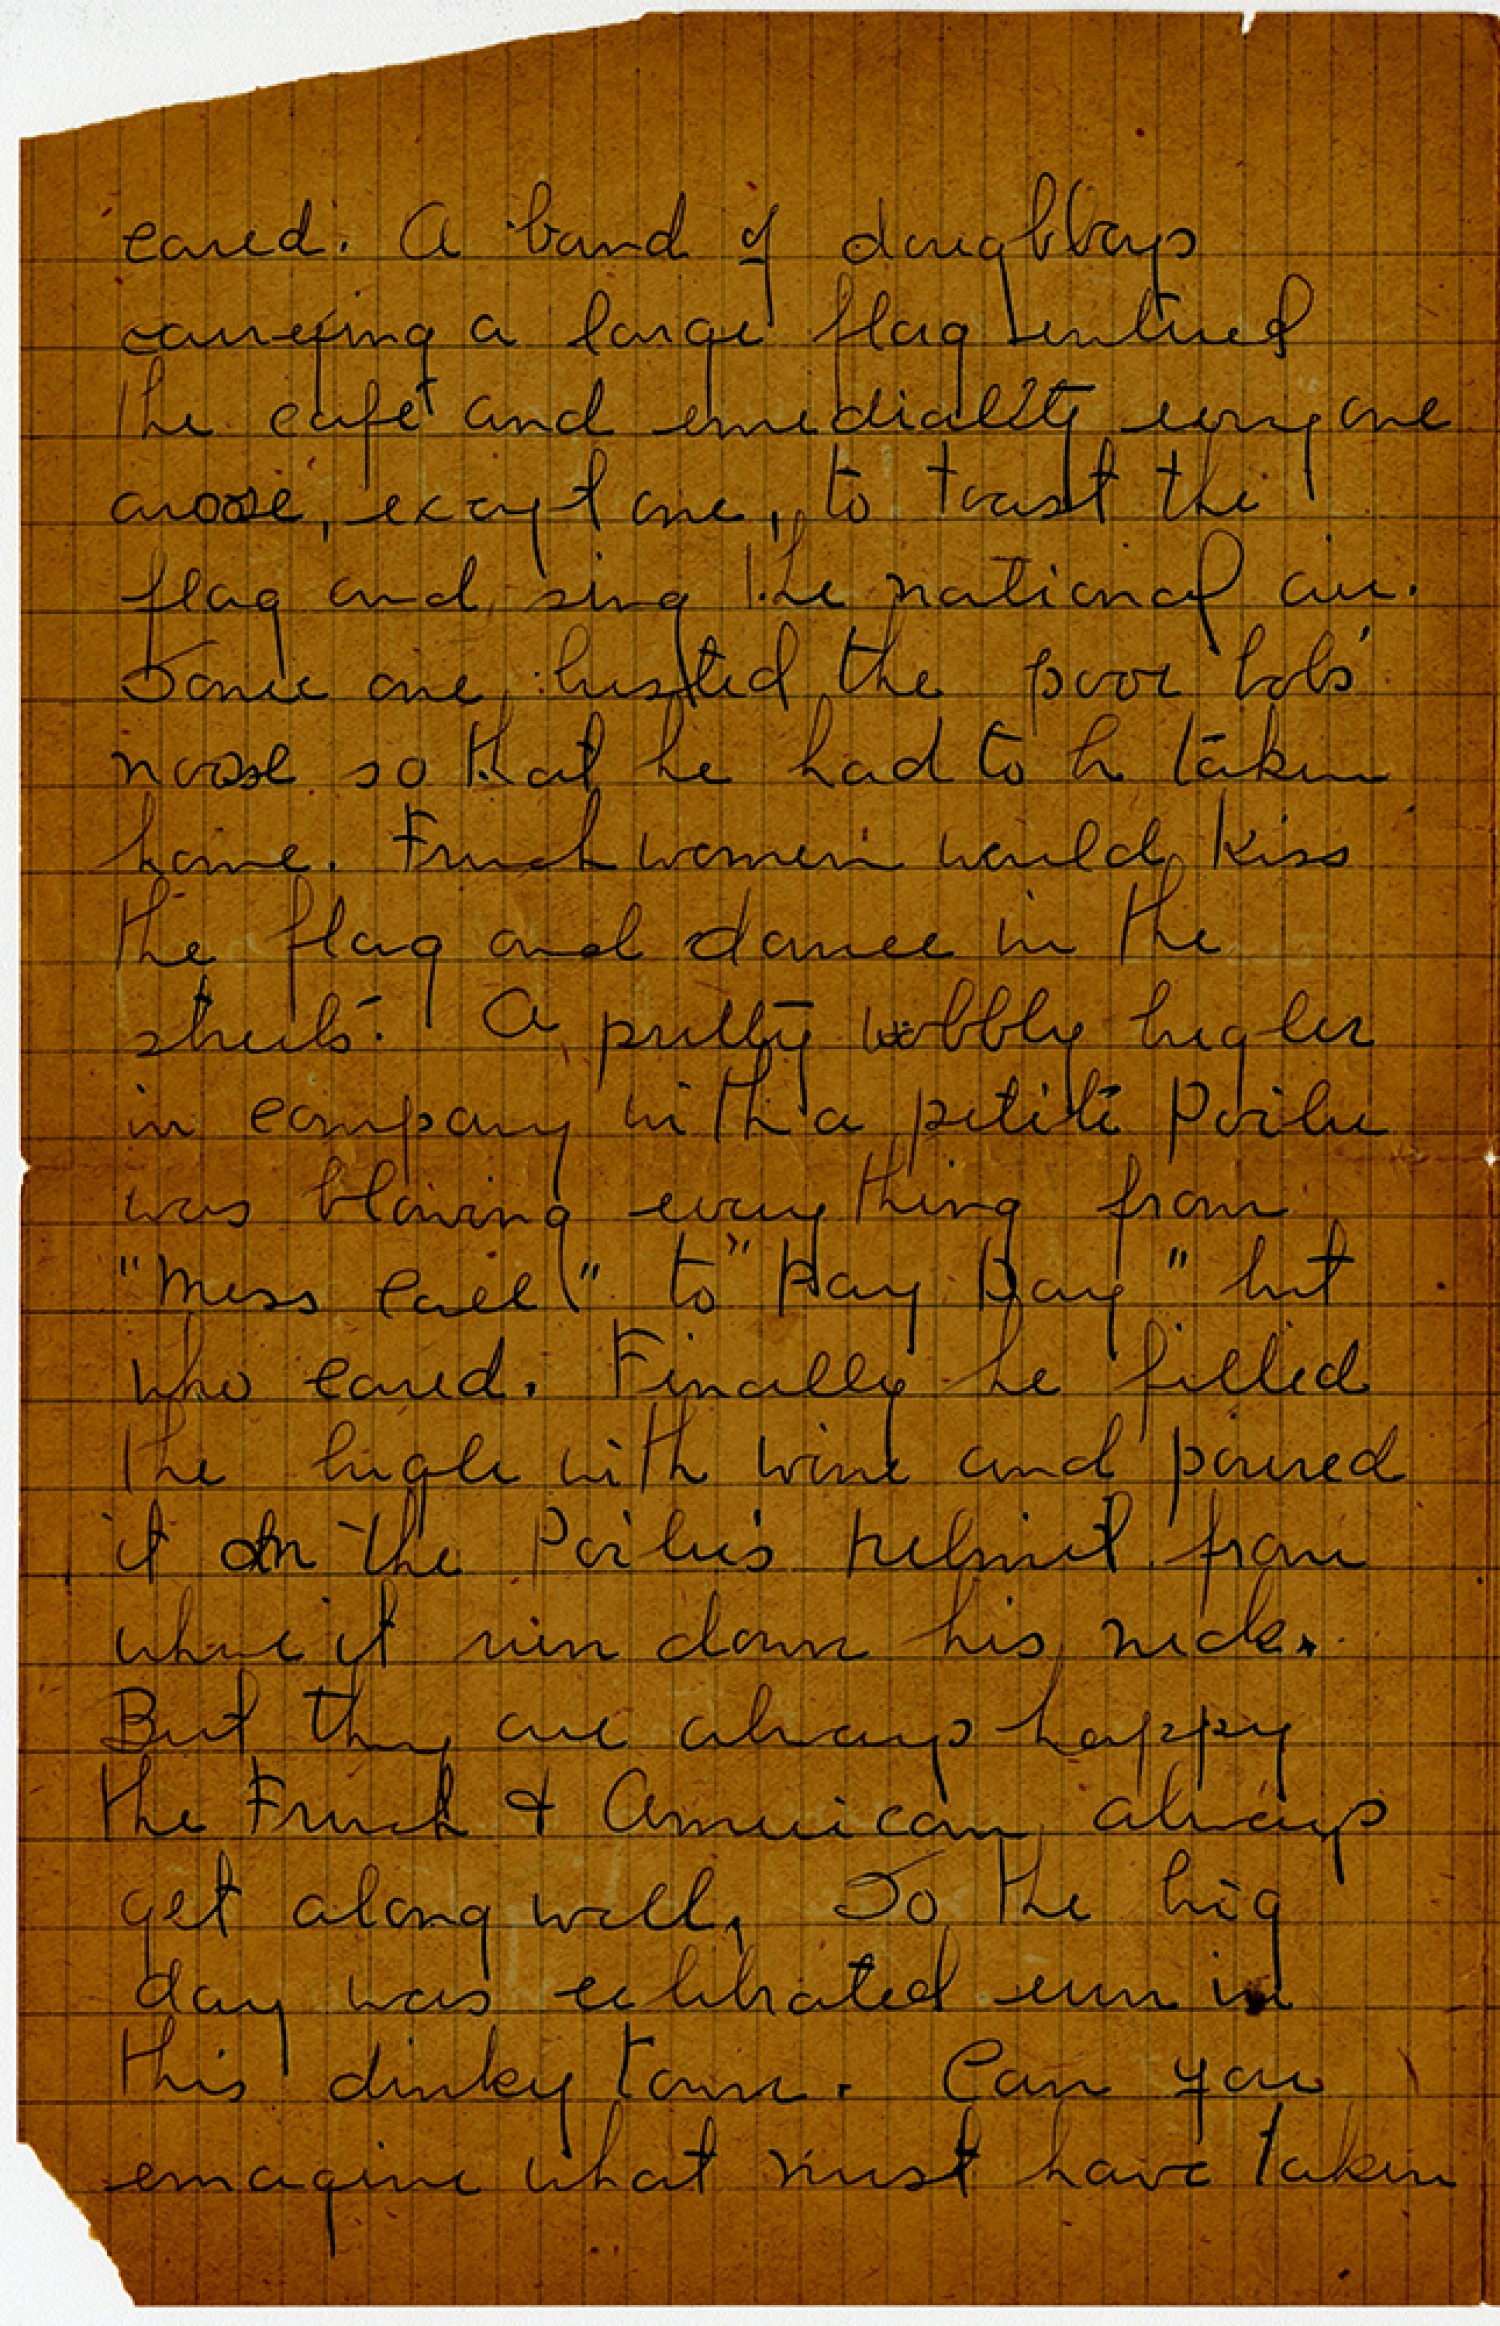 cared. A band of doughboys
carrying a large flag entired
the cafe and emediatly everyone
arose, except one, to toast the
flag and sing the national air.
Some one busted the poor bobs
nose so that he had to be taken
home. French women would kiss
the flag and dance in the
streets. A pretty wobbly bugler
in company with a petite Poilu
was blowing everything from
"Mess Call" to "Pay Day" but
who cared. Finally he filled
the bugle with wine and poured
it on the Poilu's helmit from
where it run down his neck.
But they are always happy
the French & American always
get along well, So the big
day was celibrated even in
this dinky town. Can you
emagine what must have taken